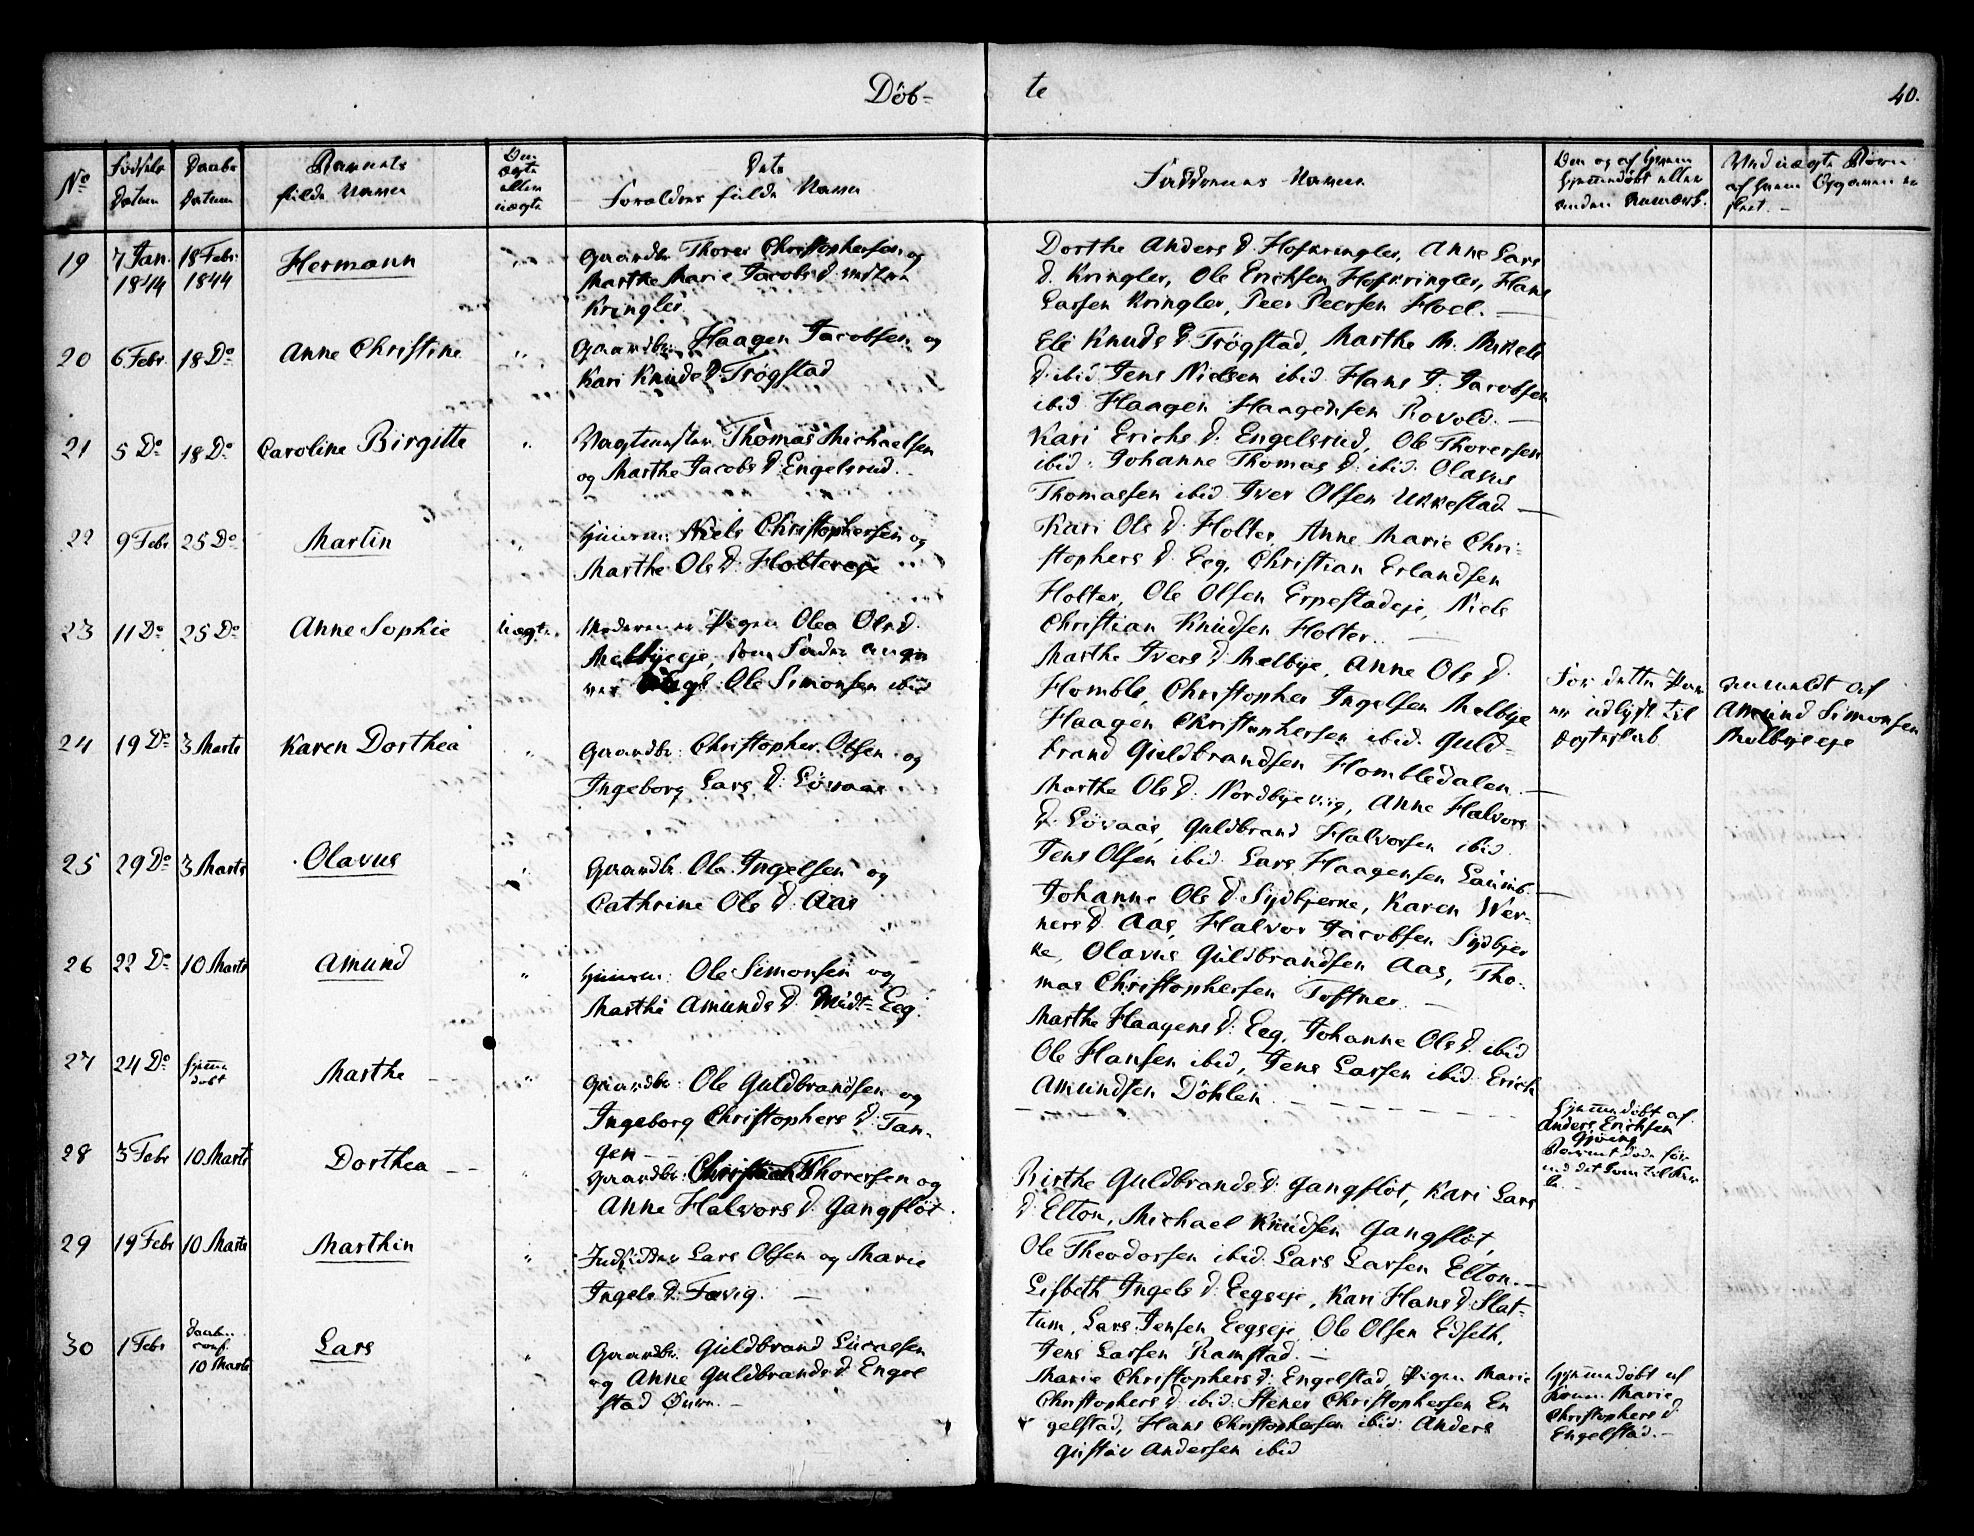 Döb-
te
40.
No
Fødsels Datum
Daabs Datum
Barnets fulde Navn
Om ægte eller uægte
Dets Forældres fulde Navn
Faddernes Navne
Om og af hvem hjemmedøbt eller anden Anmærk.
Ved uægte Børn af hvem Opgaven er skeet.-
19
7 Jan. 1844
18 Febr. 1844
Hermann
"
Gaardbr. Thorer Christophersen og
Marthe Marie Jacobs D.
Kringler
Dorthe Anders D. Hofkringler, Anne Lars
D. Kringler, Ole Erichsen Hofkringler, Hans
Larsen Kringler, Peer Peersen Hoel. —
20
6 Febr.
18 Do
Anne Christine
"
Gaardbr. Haagen Jacobsen og
Kari Knuds D. Trøgstad
Eli Knuds D. Trøgstad, Marthe M. Mikels
D. ibid. Jens Nielsen ibid. Hans J. Jacobsen
ibid. Haagen Haagensen Rovold. —
21
5 Do
18 Do
Caroline Birgitte
"
Vagtmester Thomas Michaelsen
og Marthe Jacobs D. Engelsrud. -
Kari Erichs D. Engelsrud, Ole Thorersen
ibid. Johanne Thomas D. ibid. Olavus
Thomassen ibid. Iver Olsen Ukkestad —
22
9 Febr
25 Do
Martin
"
Huusm: Niels Christophersen og
Marthe Ols D: Holtereje
Kari Ols D. Holter, Anne Marie Chri-
stophers D. Eeg, Christian Erlandsen
Holter, Ole Olsen Erpestadeje, Niels
Christian Knudsen Holter. —
23
11 Do
25 Do
Anne Sophie
Uægte.
Moderen er Pigen Olea Ols D.
Melbyeeje, som Fader angi
ves Ungk. Ole Simonsen ibid
Marthe Ivers D. Melbye, Anne Ols D.
Homble, Christopher Ingelsen Melbye
Haagen Christophersen ibid. Guld-
brand Guldbrandsen Hombledalen. —
For dette Par
er udlyst til
Ægteskab
anmeldt af
Amund Simonsen
Melbyeeje
24
19 Do
3 Marts
Karen Dorthea
"
Gaardbr: Christopher Olsen og
Ingeborg Lars D: Løvaas
Marthe Ols D. Nordbyevig, Anne Halvors
D. Løvaas, Guldbrand Halvorsen ibid.
Jens Olsen ibid. Lars Haagensen Laumb. —
25
29 Do
3 Marts
Olavus
"
Gaardbr. Ole Ingelsen og
Cathrine Ols D. Aas
Johanne Ols D. Sydbjerke, Karen Wer-
ners D. Aas, Halvor Jacobsen Sydbjer
ke, Olavus Guldbrandsen Aas, Tho-
mas Christophersen Toftner. —
26
22 Do
10 Marts
Amund
"
Huusm: Ole Simonsen og
Marthe Amunds D. Midt-Eeg.
Marthe Haagens D: Eeg, Johanne Ols D. ibid
Ole Hansen ibid, Jens Larsen ibid. Erich
Amundsen Döhlen
27
24 Do
hjemme døbt
Marthe
"
Gaardbr: Ole Guldbrandsen og
Ingeborg Christophers D. Tan-
gen —
Hjemmedøbt af
Anders Erichsen
Gjöding
Barnet døde for-
ind det kom til Kir
ke. -
28
3 Febr
10 Marts
Dorthea
"
Gaardbr: Christian Thorersen og
Anne Halvors D. Gangflöt.
Birthe Guldbrands D. Gangflöt, Kari Lars
D. Elton, Michael Knudsen Gangflöt,
Ole Theodorsen ibid. Lars Larsen Elton. —
29
19 Febr
10 Marts
Marthin
"
Indsidder Lars Olsen og Marie
Ingels D. Tævig. —
Lisbeth Ingels D. Eegseje, Kari Hans D. Slat-
tum, Lars Jensen Eegseje, Ole Olsen Edseth,
Jens Larsen Ramstad. —
30
1 Febr
Daabs. conf. 10 Marts
Lars
"
Gaardbr. Guldbrand Lucassen
og Anne Guldbrands D. Engel
stad Övre. -
Marie Christophers D. Engelstad, Pigen Marie
Christophers D. ibid. Stener Christophersen En
gelstad, Hans Christophersen ibid. Anders
Gustav Andersen ibid
Hjemmedøbt af
Marie
Christophers D.
Engelstad. -